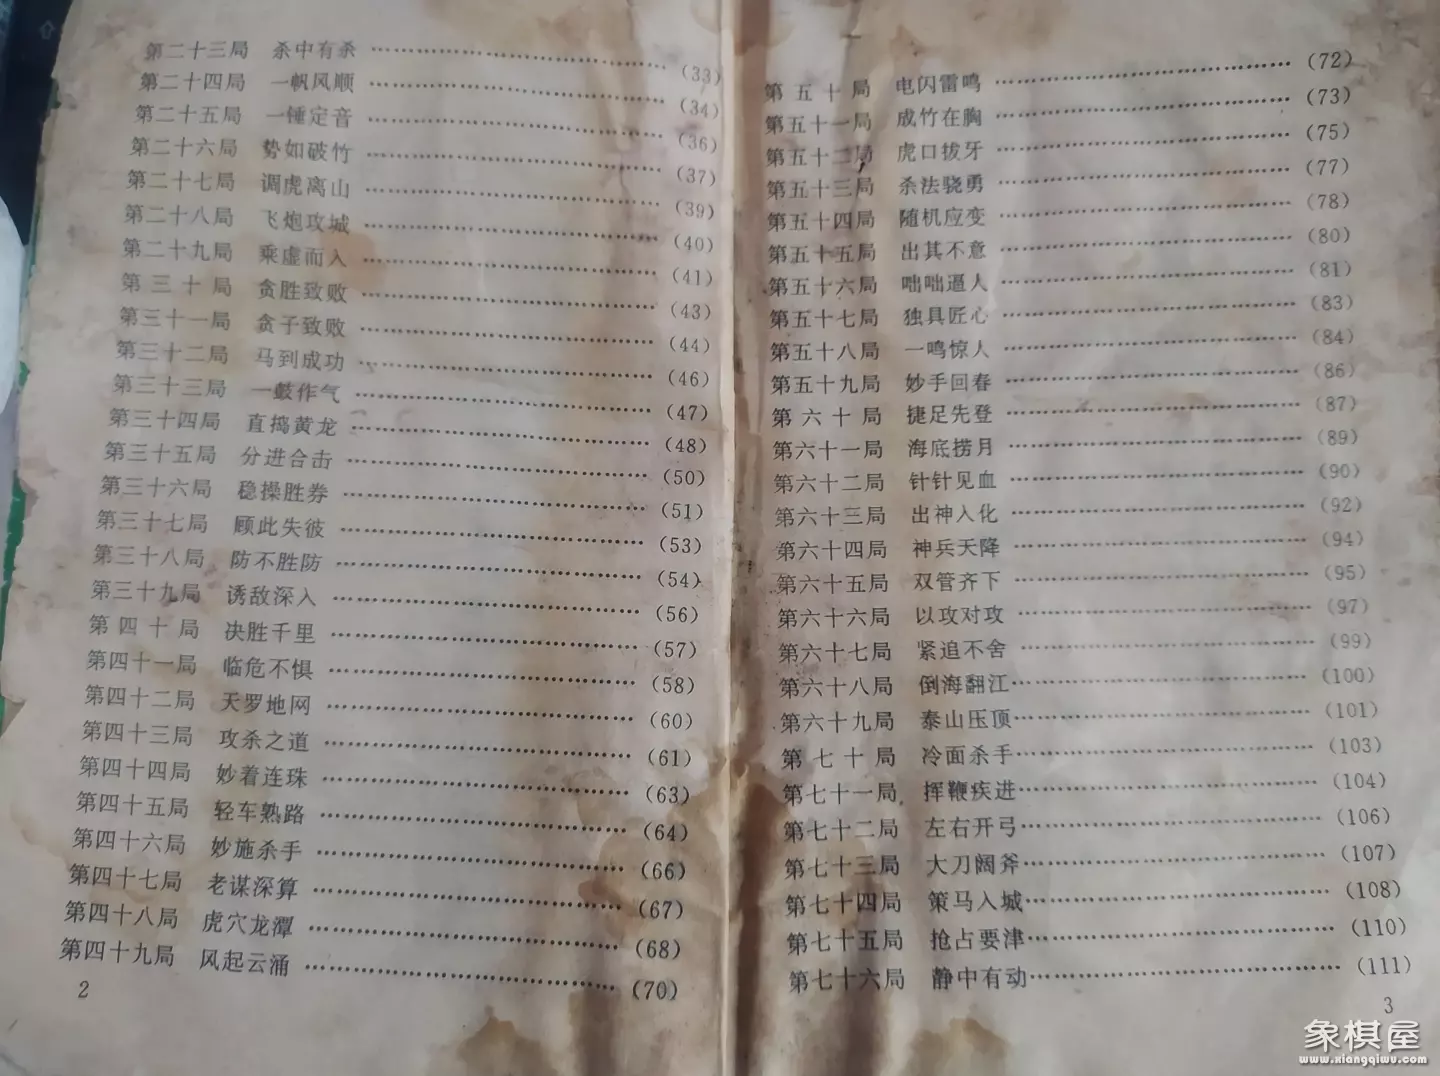 第二十三局 杀中有杀 ……………………………… (33)
第二十四局 一帆风顺 ……………………………… (34)
第二十五局 一锤定音 ……………………………… (36)
第二十六局 势如破竹 ……………………………… (37)
第二十七局 调虎离山 ……………………………… (39)
第二十八局 飞炮攻城 ……………………………… (40)
第二十九局 乘虚而入 ……………………………… (41)
第三十局 贪胜致败 ……………………………… (43)
第三十一局 贪子致败 ……………………………… (44)
第三十二局 马到成功 ……………………………… (46)
第三十三局 一鼓作气 ……………………………… (47)
第三十四局 直捣黄龙 ……………………………… (48)
第三十五局 分进合击 ……………………………… (50)
第三十六局 稳操胜券 ……………………………… (51)
第三十七局 顾此失彼 ……………………………… (53)
第三十八局 防不胜防 ……………………………… (54)
第三十九局 诱敌深入 ……………………………… (56)
第四十局 决胜千里 ……………………………… (57)
第四十一局 临危不惧 ……………………………… (58)
第四十二局 天罗地网 ……………………………… (60)
第四十三局 攻杀之道 ……………………………… (61)
第四十四局 妙着连珠 ……………………………… (63)
第四十五局 轻车熟路 ……………………………… (64)
第四十六局 妙施杀手 ……………………………… (66)
第四十七局 老谋深算 ……………………………… (67)
第四十八局 虎穴龙潭 ……………………………… (68)
第四十九局 风起云涌 ……………………………… (70)
2
第五十局 电闪雷鸣 ……………………………… (72)
第五十一局 成竹在胸 ……………………………… (73)
第五十二局 虎口拔牙 ……………………………… (75)
第五十三局 杀法骁勇 ……………………………… (77)
第五十四局 随机应变 ……………………………… (78)
第五十五局 出其不意 ……………………………… (80)
第五十六局 咄咄逼人 ……………………………… (81)
第五十七局 独具匠心 ……………………………… (83)
第五十八局 一鸣惊人 ……………………………… (84)
第五十九局 妙手回春 ……………………………… (86)
第六十局 捷足先登 ……………………………… (87)
第六十一局 海底捞月 ……………………………… (89)
第六十二局 针针见血 ……………………………… (90)
第六十三局 出神入化 ……………………………… (92)
第六十四局 神兵天降 ……………………………… (94)
第六十五局 双管齐下 ……………………………… (95)
第六十六局 以攻对攻 ……………………………… (97)
第六十七局 紧追不舍 ……………………………… (99)
第六十八局 倒海翻江 ……………………………… (100)
第六十九局 泰山压顶 ……………………………… (101)
第七十局 冷面杀手 ……………………………… (103)
第七十一局 挥鞭疾进 ……………………………… (104)
第七十二局 左右开弓 ……………………………… (106)
第七十三局 大刀阔斧 ……………………………… (107)
第七十四局 策马入城 ……………………………… (108)
第七十五局 抢占要津 ……………………………… (110)
第七十六局 静中有动 ……………………………… (111)
3
象棋屋
www.xiangqiwu.com